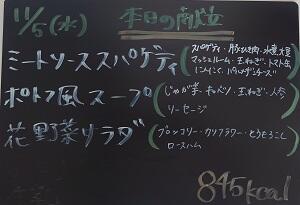 11/5(水) 本日の献立
ミートソーススパゲティ(スパゲティ・豚ひき肉・水煮大豆
マッシュルーム・玉ねぎ・トマト缶
にんにく・パルメザンチーズ)
ポトフ風スープ(じゃが芋・キャベツ・玉ねぎ・人参
ソーセージ)
花野菜サラダ(ブロッコリー・カリフラワー・とうもろこし
ロースハム)
845kcal